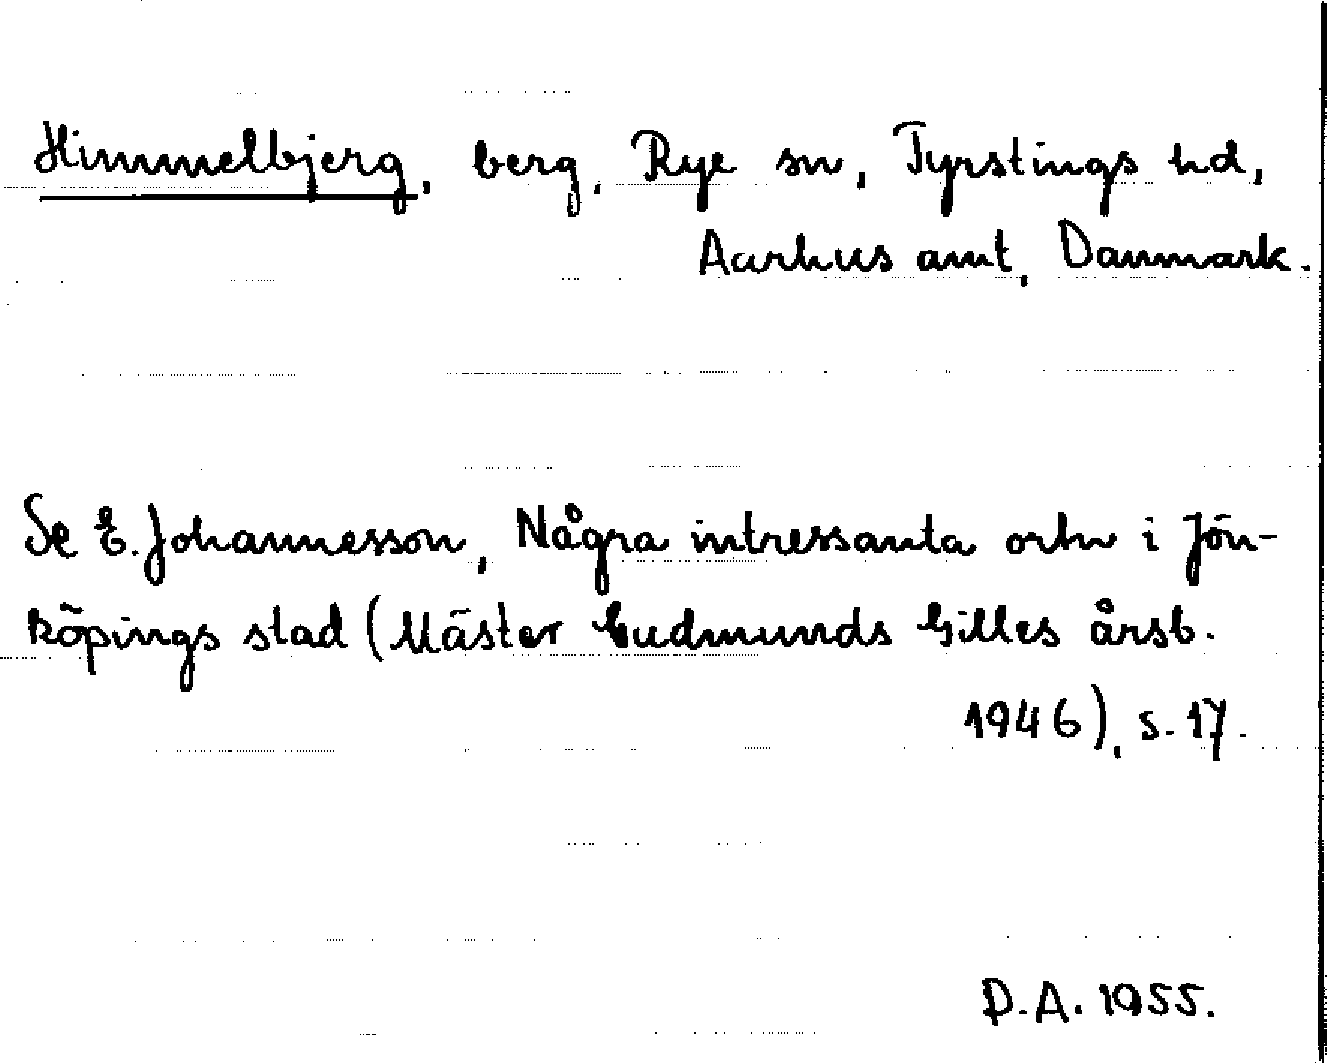 Himmelbjerg, berg, Rye sn, Tyrstings hd,
Aarhus amt, Danmark.
Se E. Johannesson, Några intressanta ortn i Jön-
köpings stad (Mäster Gudmunds Gilles årsb.
1946), s. 17.
D.A. 1955.